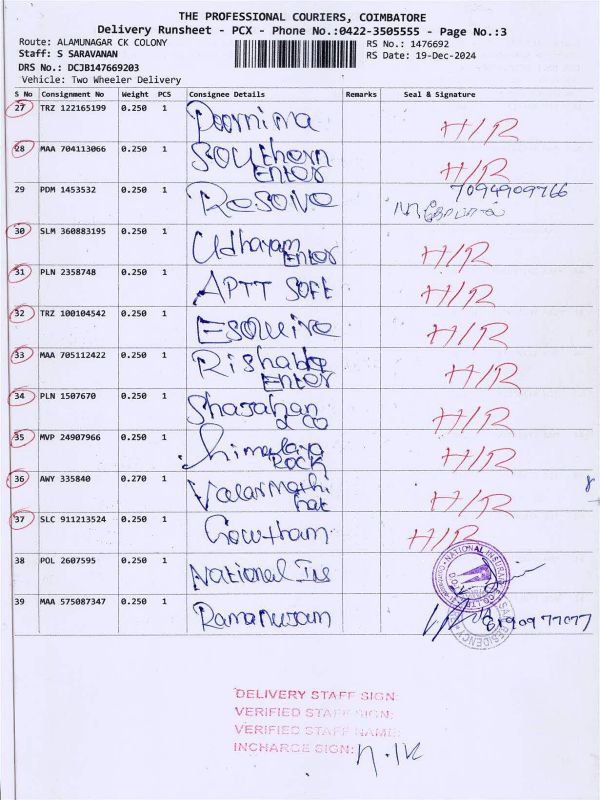 THE PROFESSIONAL COURIERS, COIMBATORE
Delivery Runsheet - PCX - Phone No.:0422-3505555 - Page No.:3
Route: ALAMUNAGAR CK COLONY
RS No.: 1476692
Staff: S SARAVANAN
RS Date: 19-Dec-2024
DRS No.: DCJB147669203
Vehicle: Two Wheeler Delivery
S No Consignment No Weight PCS Consignee Details Remarks Seal & Signature
27 TRZ 122165199 0.250 1 Poornima H/R
28 MAA 704113066 0.250 1 Southern Enter H/R
29 PDM 1453532 0.250 1 Resove 7094909766
30 SLM 360883195 0.250 1 Udhayam Enter H/R
31 PLN 2358748 0.250 1 APTT Soft H/R
32 TRZ 100104542 0.250 1 Esquire H/R
33 MAA 705112422 0.250 1 Rishabh Enter H/R
34 PLN 1507670 0.250 1 Shajahan & Co H/R
35 MVP 24907966 0.250 1 Himalaya Rock H/R
36 AWY 335840 0.270 1 Valarmathi H/R
8
37 SLC 911213524 0.250 1 Gowtham H/R
38 POL 2607595 0.250 1 National Ins
NATIONAL INSURANCE CO. LTD.
39 MAA 575087347 0.250 1 Ramanujam 8190977077
RESIDENCY
DELIVERY STAFF SIGN:
VERIFIED STAFF SIGN:
VERIFIED STAFF NAME:
INCHARGE SIGN: